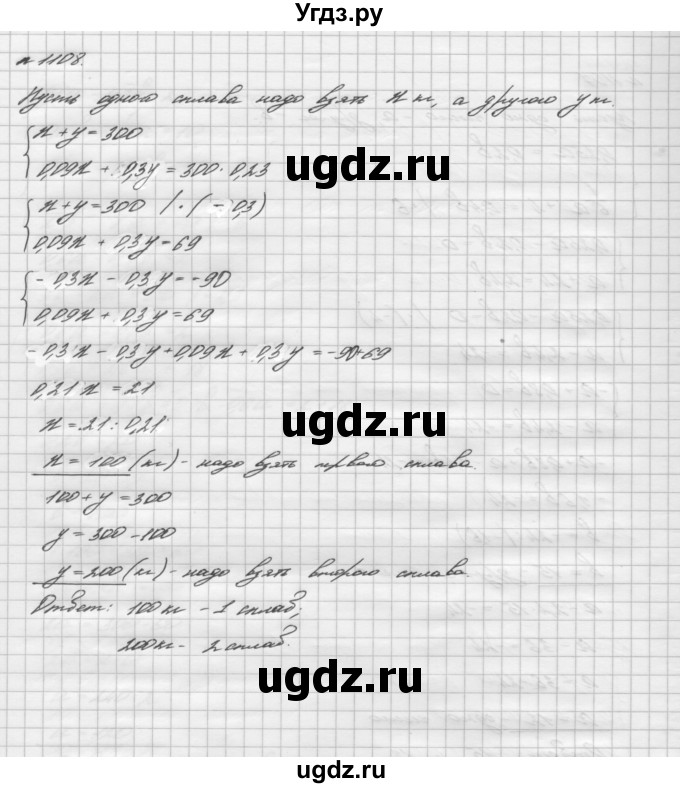 Угдз.ру
№ 1108.
Пусть одного сплава надо взять x кг, а другого y кг.
x + y = 300
0,09x + 0,3y = 300 · 0,23
ugdz.ru
x + y = 300 / · (-0,3)
0,09x + 0,3y = 69
-0,3x - 0,3y = -90
0,09x + 0,3y = 69
-0,3x - 0,3y + 0,09x + 0,3y = -90+69
0,21x = 21
x = 21 : 0,21
ugdz.ru
x = 100 (кг) - надо взять первого сплава.
100 + y = 300
y = 300 - 100
y = 200 (кг) - надо взять второго сплава.
Ответ: 100 кг - 1 сплав;
200 кг - 2 сплав.
ugdz.ru
ugdz.ru